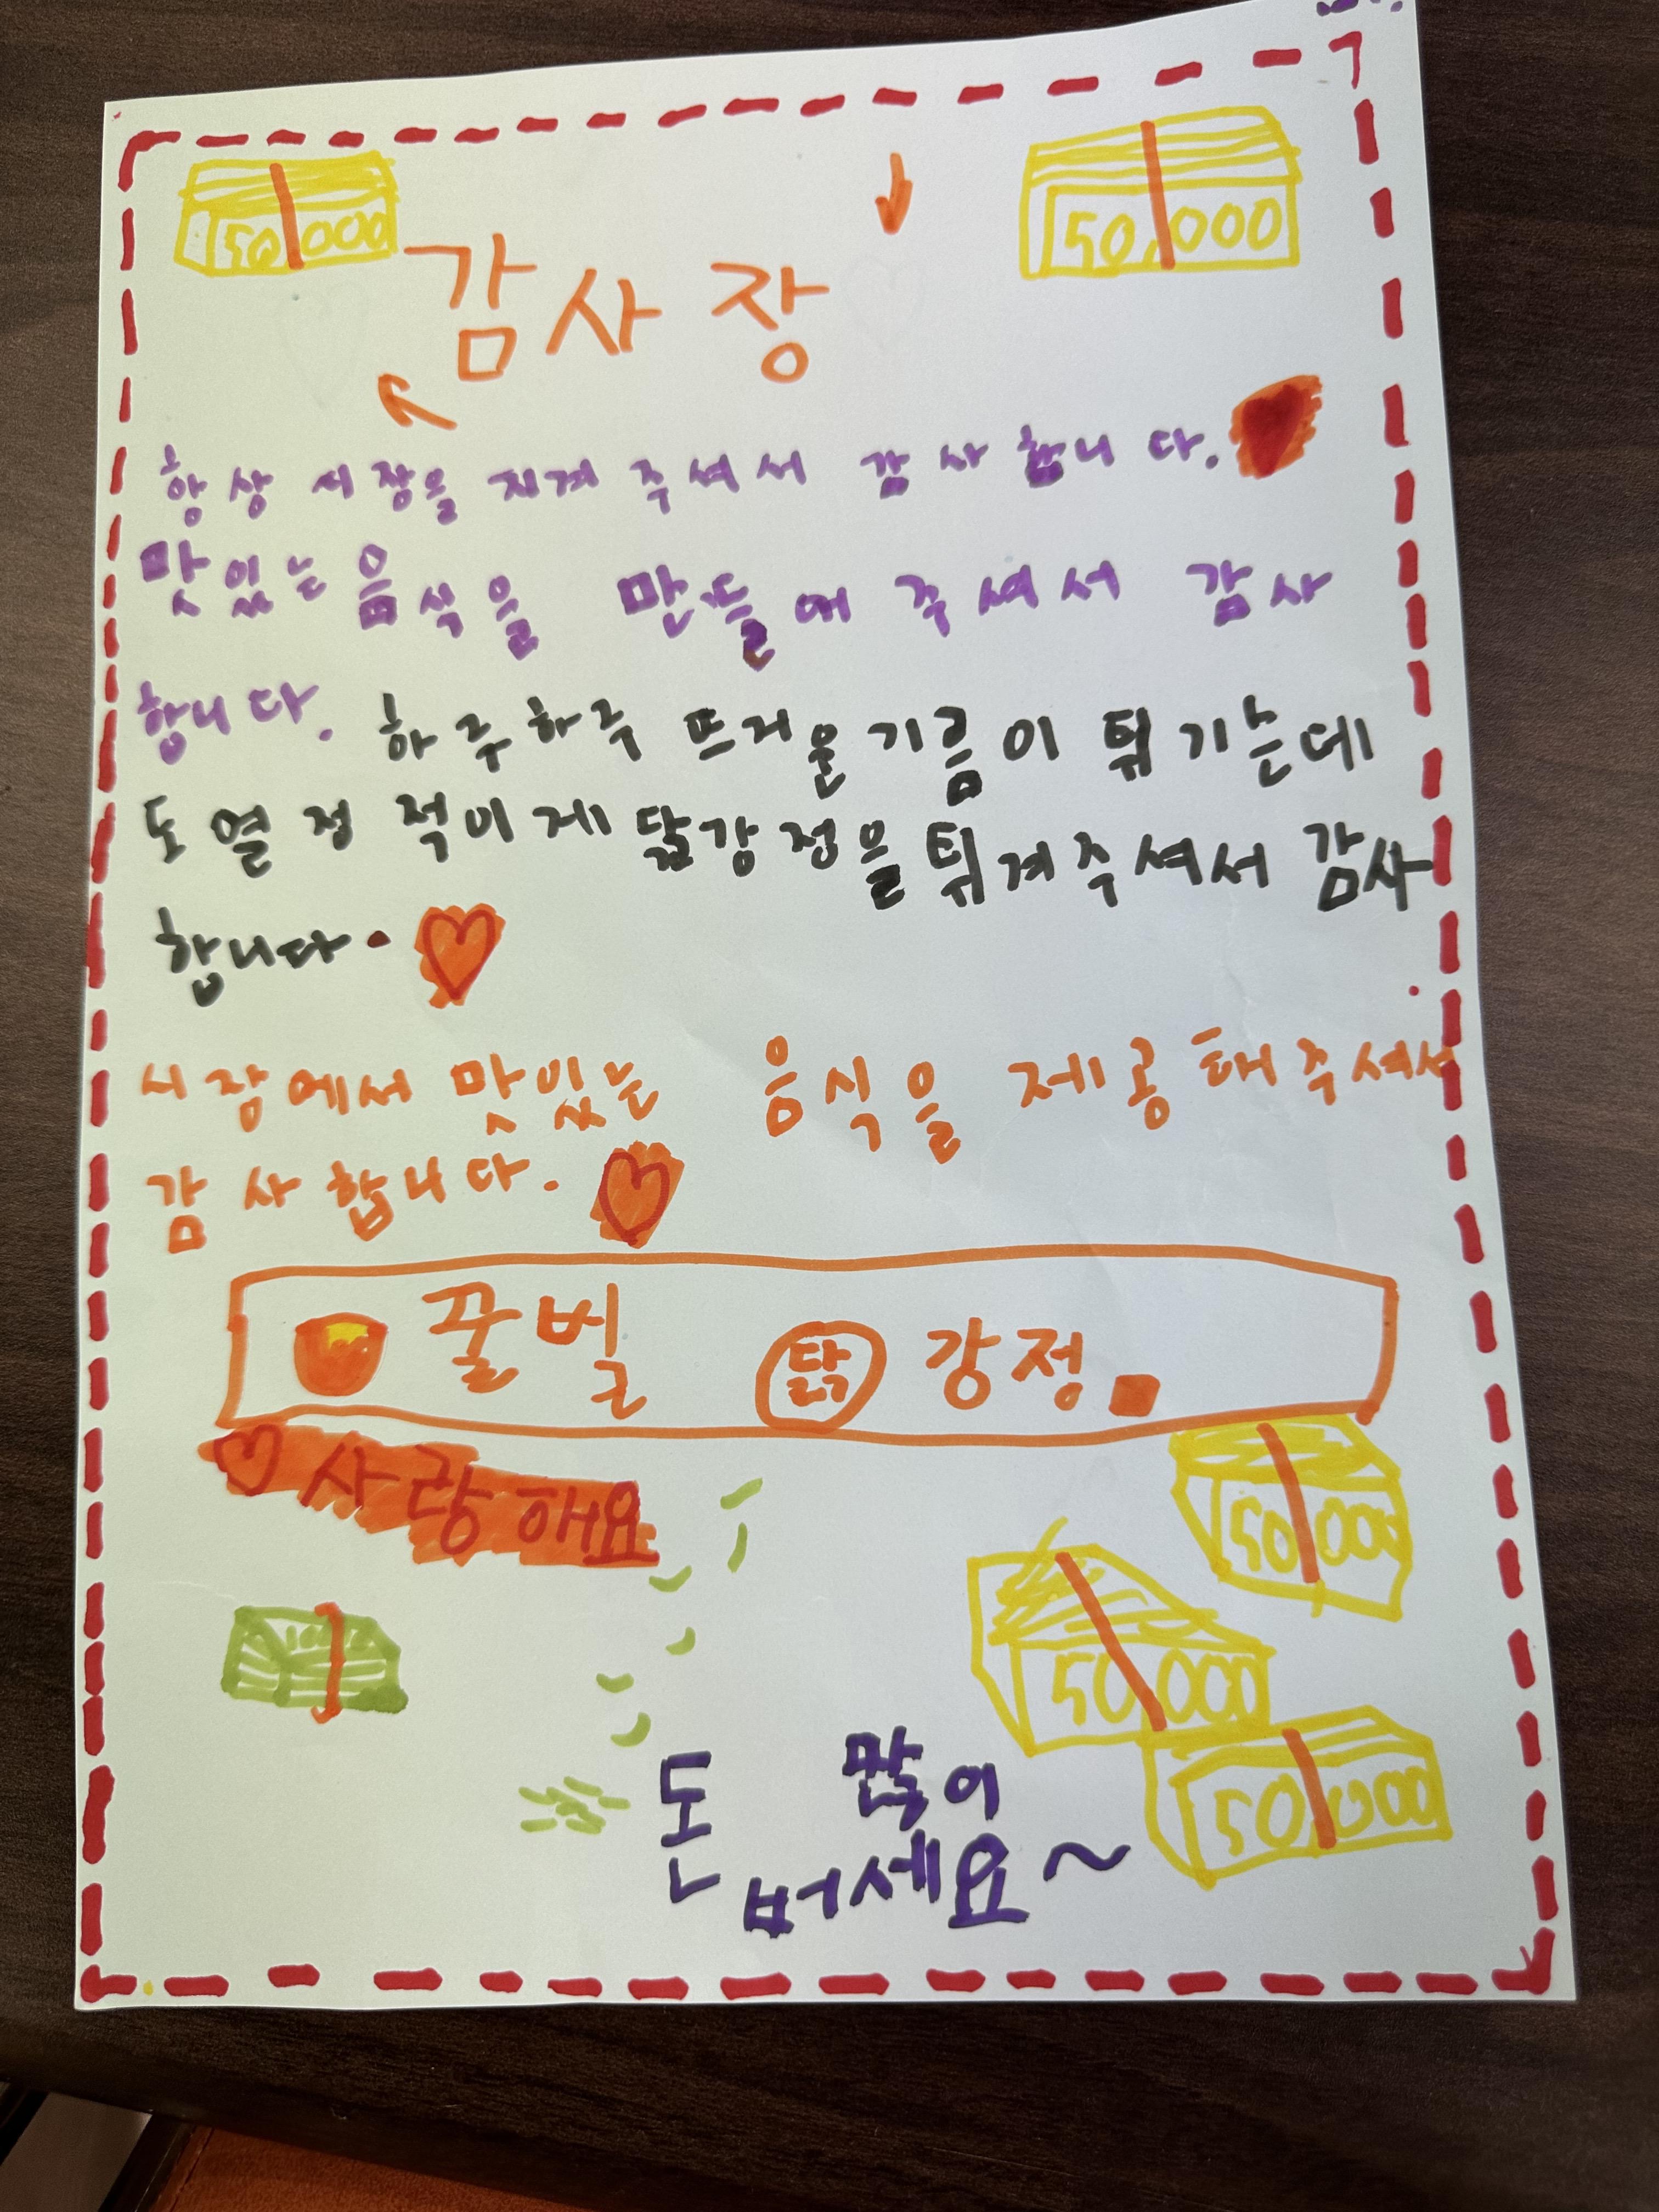 50,000
50,000
감사장
항상 시장을 지켜 주셔서 감사합니다.
맛있는 음식을 만들어 주셔서 감사
합니다. 하루하루 뜨거운 기름이 튀기는데
도 열정적이게 닭강정을 튀겨주셔서 감사
합니다.
시장에서 맛있는 음식을 제공해주셔서
감사합니다.
꿀벌 닭강정
사랑해요
50,000
50,000
50,000
돈 많이
버세요~